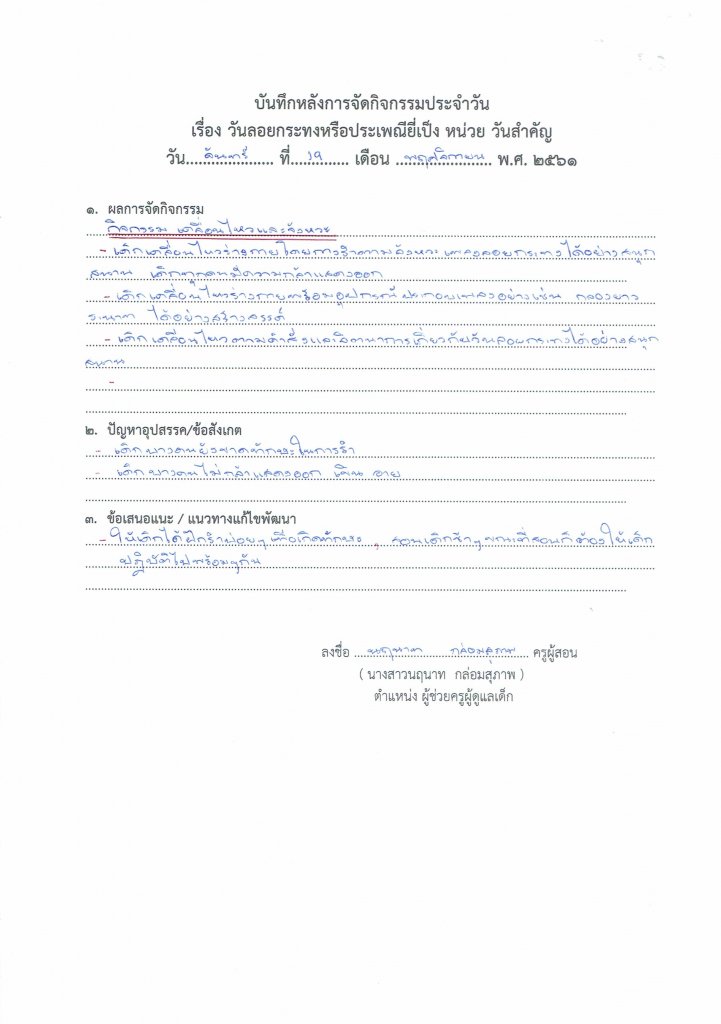 บันทึกหลังการจัดกิจกรรมประจำวัน
เรื่อง วันลอยกระทงหรือประเพณียี่เป็ง หน่วย วันสำคัญ
วัน....จันทร์.... ที่...19... เดือน ...พฤศจิกายน... พ.ศ. ๒๕๖๑
๑. ผลการจัดกิจกรรม
กิจกรรม เคลื่อนไหวและจังหวะ
- เด็กเคลื่อนไหวร่างกายโดยการรำตามจังหวะเพลงลอยกระทงได้อย่างสนุก
สนาน เด็กทุกคนมีความกล้าแสดงออก
- เด็กเคลื่อนไหวร่างกายพร้อมอุปกรณ์ประกอบเพลงอย่างเช่น กลองยาว
ระนาด ได้อย่างสร้างสรรค์
- เด็กเคลื่อนไหวตามคำสั่งและจินตนาการเกี่ยวกับวันลอยกระทงได้อย่างสนุก
สนาน
-
๒. ปัญหาอุปสรรค/ข้อสังเกต
- เด็กบางคนยังขาดทักษะในการรำ
- เด็กบางคนไม่กล้าแสดงออก เขิน อาย
๓. ข้อเสนอแนะ / แนวทางแก้ไขพัฒนา
- ให้เด็กได้ฝึกรำบ่อยๆเพื่อเกิดทักษะ , สอนเด็กช้าๆขณะที่สอนก็ต้องให้เด็ก
ปฏิบัติไปพร้อมๆกัน
ลงชื่อ ...นฤนาท กล่อมสุภาพ... ครูผู้สอน
( นางสาวนฤนาท กล่อมสุภาพ )
ตำแหน่ง ผู้ช่วยครูผู้ดูแลเด็ก